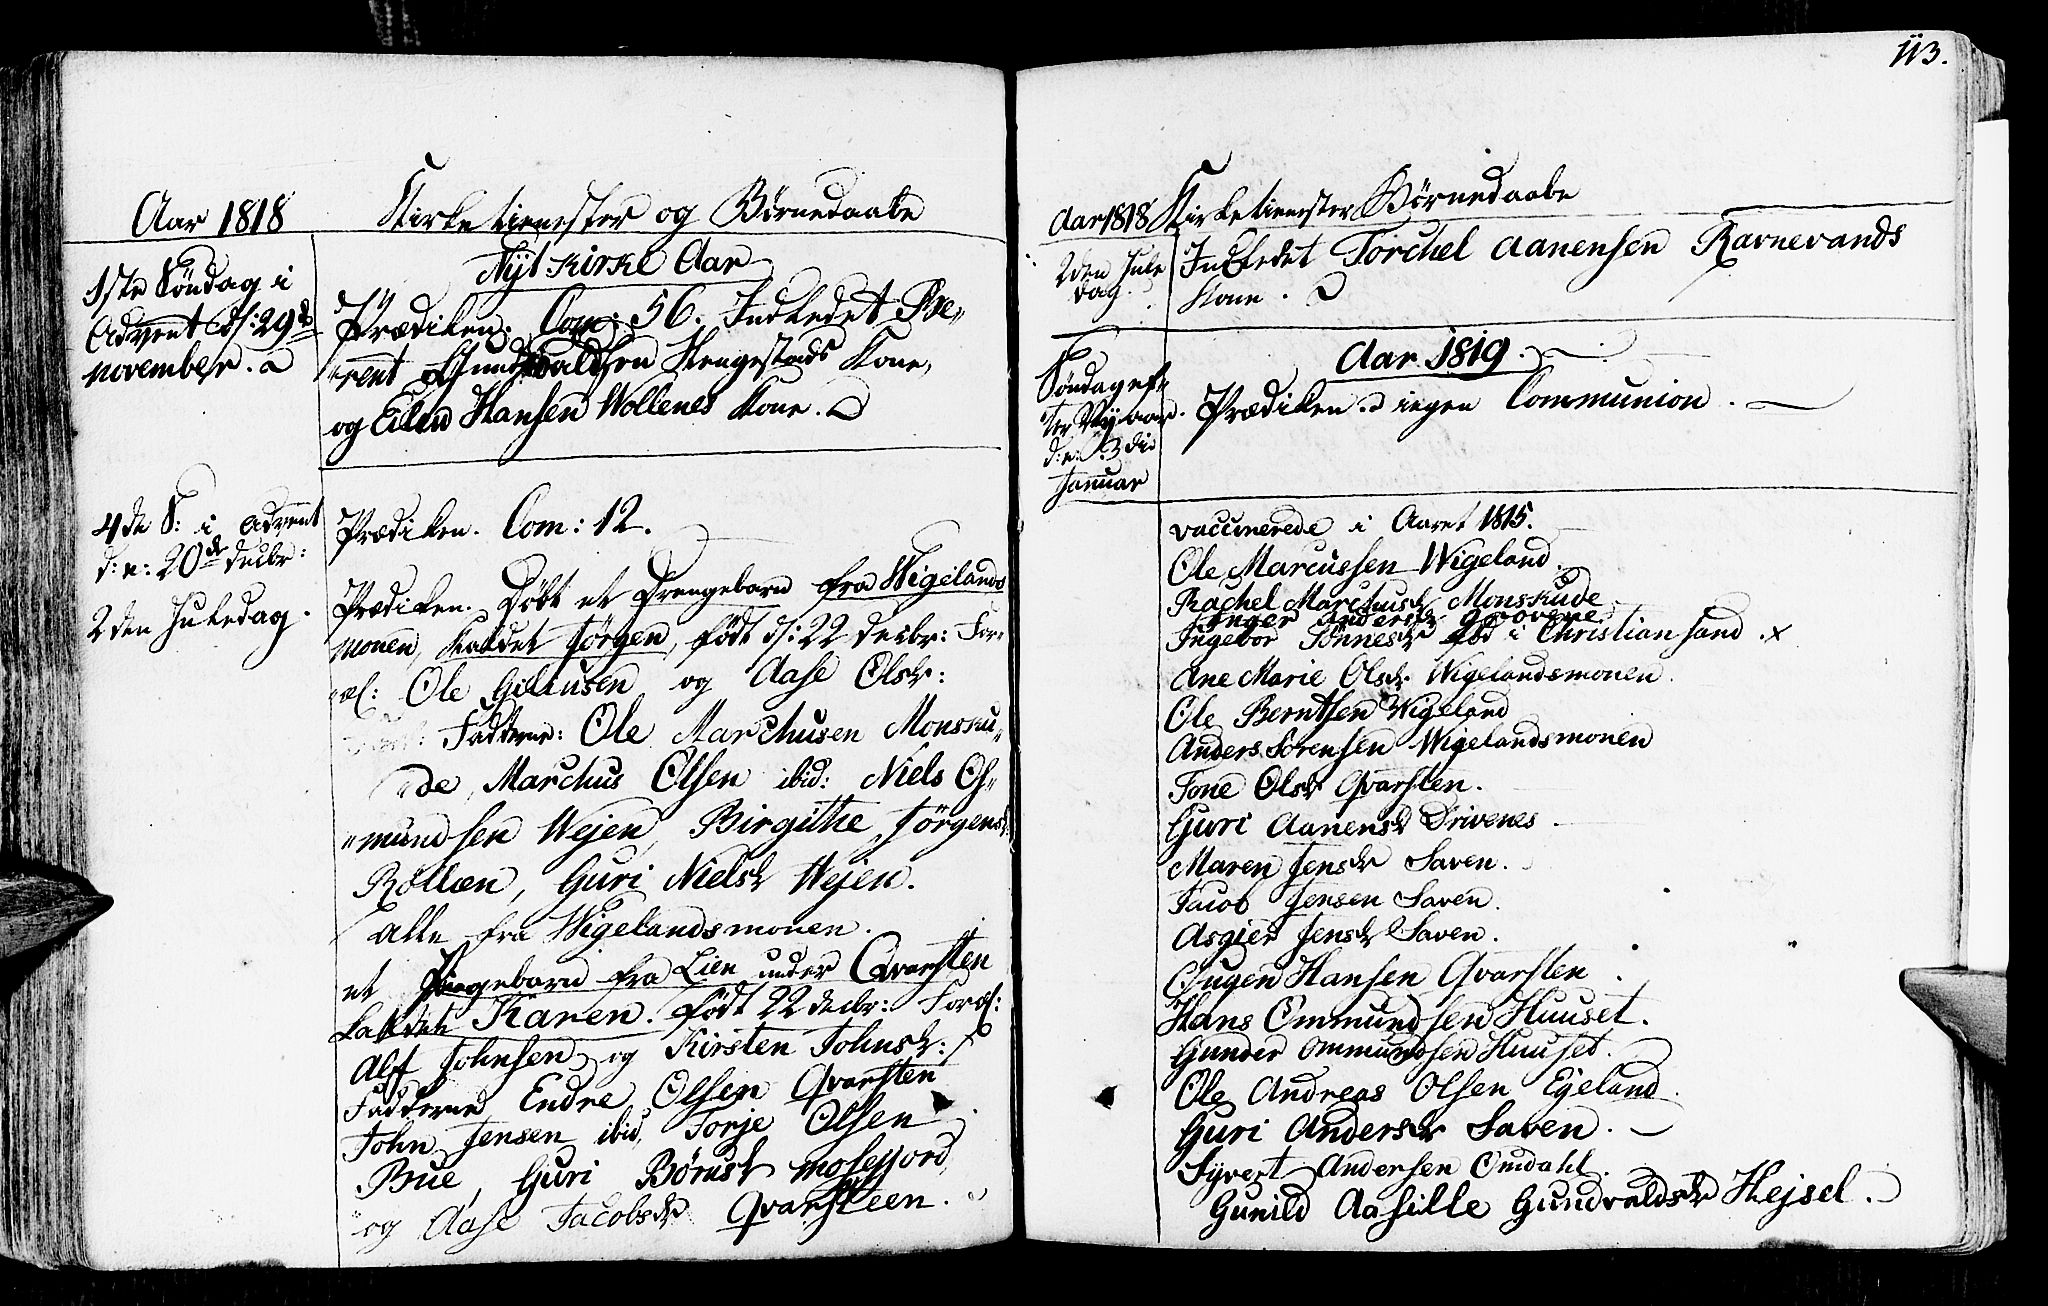 Aar 1818
Kirketienester og Børnedaabe
Nyt Kirke Aar
1ste Søndag i
Advent d: 29de
november.
Prædiken. Com: 56. Indledet Be-
"rent Gundvaldsen Hengestads Kone,
og Eilen Hansen Wollenes Kone.
4de S: i Advent
d: e: 20de decbr:
Prædiken. Com: 12.
2den Juledag.
Prædiken. Døbt et Drengebarn fra Wigelands
monen, kaldet Jørgen, født d: 22 decbr: For-
"æl: Ole Giliusen og Aase Olsdr:
Fadderne: Ole Marchusen Monsku-
"de, Marchus Olsen ibid: Niels Os-
"mundsen Wejen, Birgithe Jørgensdr
Røllæn, Guri Nielsdr Wejen.
alle fra Wigelandsmonen.
et Pigebarn fra Lien under Qvarsten
kaldet Karen. født 22 decbr: Foræl:
Alf Johnsen og Kirsten Johnsdr:
Fadderne Endre Olsen Qvarsten
John Jensen ibid, Torje Olsen
Bue, Guri Børusdr Mosefjord,
og Aase Jacobsdr Qvarsteen.
113.
Aar 1818 Kirketienester Børnedaabe
2den Jule
dag.
Indledet Torchel Aanensen Ravnevands
Kone.
Aar 1819.
Søndag ef-
ter Nyaar.
d: e: 3die
Januar
Prædiken. ingen Communion.
vaccinerede i Aaret 1815.
Ole Marcussen Wigeland.
Rachel Marchusdr Monskude
Inger Andersdr Groovene
Ingebor Tønnesdr fød i Christiansand. x
Ane Marie Olsdr Wigelandsmonen.
Ole Berntsen Wigeland
Anders Sørensen Wigelandsmonen
Tone Olsdr Qvarsten.
Guri Aanensdr Drivenes.
Maren Jensdr Saven.
Jacob Jensen Saven.
Asgier Jensdr Saven.
Ougen Hansen Qvarsten.
Hans Ommundsen Huuset.
Gunder Ommundsen Huuset.
Ole Andreas Olsen Egeland.
Guri Andersdr Saven.
Syvert Andersen Omdahl.
Gunild Aasille Gundvaldsdr Hejsel.